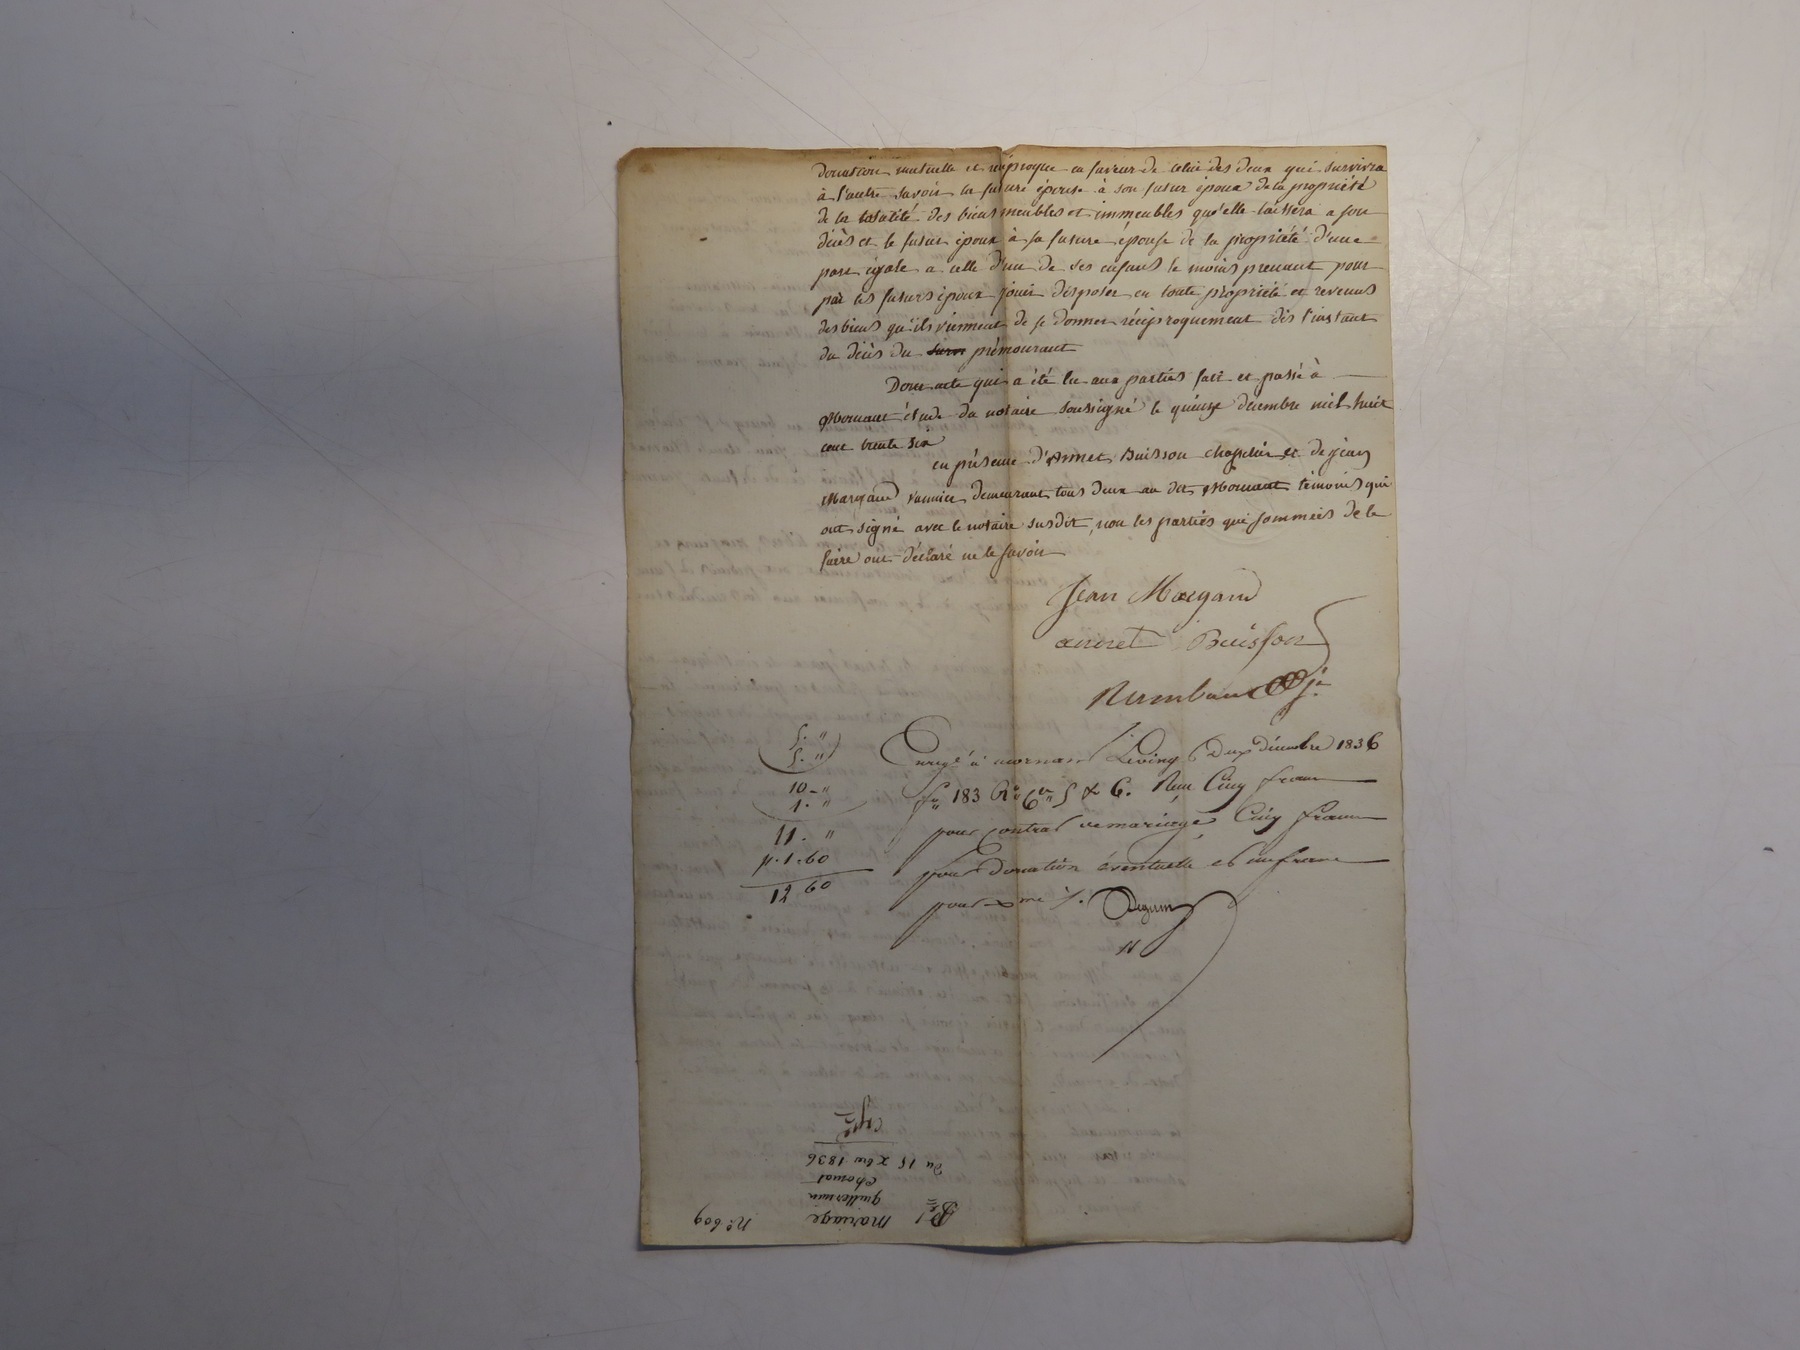 Donation mutuelle et réciproque en faveur de celui des deux qui survivra
à l'autre savoir la future épouse à son futur époux de la propriété
de la totalité des biens meubles et immeubles qu'elle laissera a son
décès et le futur époux à sa future épouse de la propriété d'une
part égale a celle d'un de ses enfans le moins prenant pour
par les futurs époux jouir disposer en toute propriété et revenus
des biens qu'ils viennent de se donner réciproquement dès l'instant
du décès du prémourant
Dont acte qui a été lu aux parties fait et passé à
Mornant étude du notaire soussigné le quinze décembre mil huit
cent trente six
en présence d'Annet Buisson chapelier et de jean
Margand vannier demeurant tous deux au dit Mornant témoins qui
ont signé avec le notaire susdit, non les parties qui sommées de le
faire ont déclaré ne le savoir
Jean Margand
annet Buisson
5. "
5. "
10 - "
1. "
11. "
p. 1. 60
12 60
Enregé à mornant le vingt Deux décembre 1836
f° 183 R° Ces 5 & 6. Reçu Cinq francs
pour contrat de mariage Cinq francs
pour Donation éventuelle et un franc
pour Xme
11
N° 609
mariage
guillermin
chomat
du 15 Xbre 1836